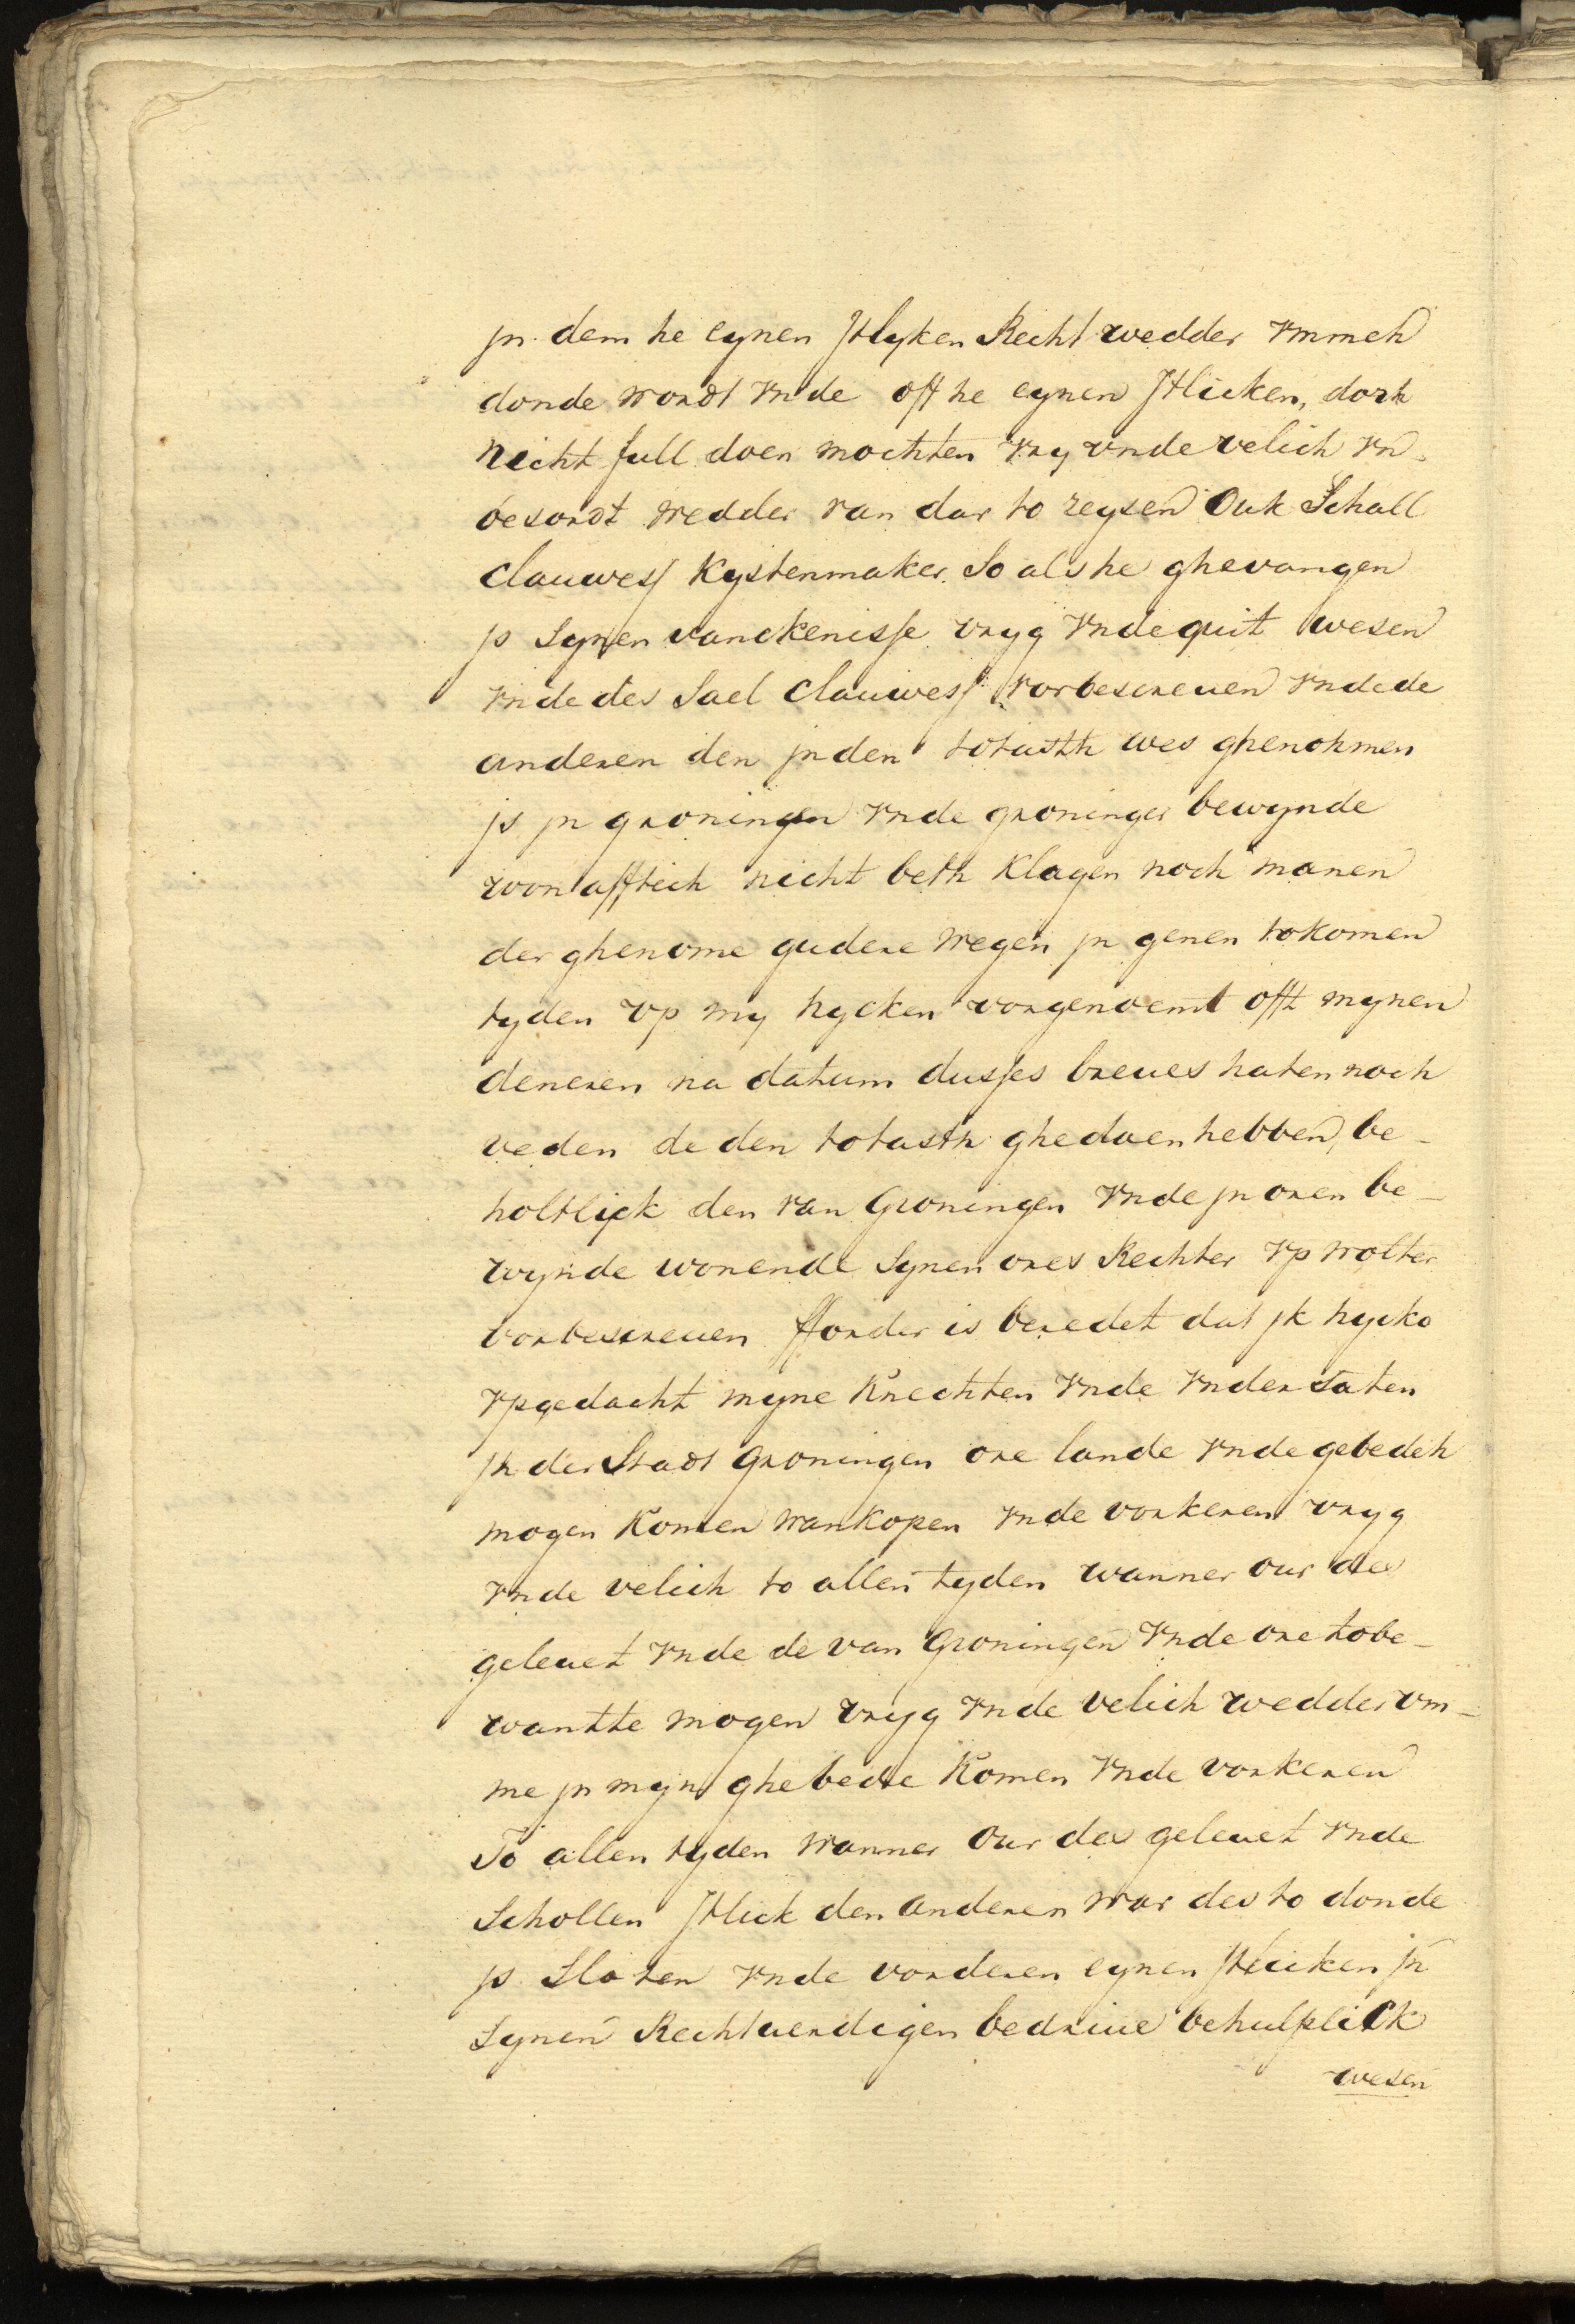 jn dem he eynen Jtlyken Recht wedder vmmeh
donde wordt vnde off he eynen Jtlicken, dorh
nicht full doen mochten vry vnde velich vn
besordt wedder van dar to reysen Ouk Schall
Clauwess Kystenmaker. So als he ghevangen
js Synen vanckenisse vryg vnde quit wesen
vnde des Sael Clauwess vorbescreuen vnde de
anderen den jn den totasth wes ghenohmen
js jn groningen vnde groninger bewynde
wonafftich nicht beth Klagen noch manen
der ghenome gudere wegen jn genen tokomen
tyden vp my hycken vorgenoemt offt mynen
deneren na datum dusses breues haten noch
veden de den totasth ghedaen hebben, be-
holtlijck den van Groningen vnde jn oren be-
wijnde wonende Synen ores Rechter vp wolter
vorbescreuen fforder is beredet dat jk hycko
vpgedacht myne Knechten vnde vndersaten
jn der Stadt Groningen ore lande vnde gebedeh
mogen Komen wankopen vnde vorkeren vryg
vnde velich to allen tyden wanner our des
geleuet vnde de van Groningen vnde ore tobe-
wantte mogen vryg vnde velich wedder vm-
me jn mijn ghebede Komen vnde vorkeren
To allen tyden wanner Our des geleuet vnde
Schollen Jtlick den anderen war des to donde
js Slaten vnde vorderen eynen Jtlicken jn
Synen Rechtuerdigen bedriue behulplick
wesen